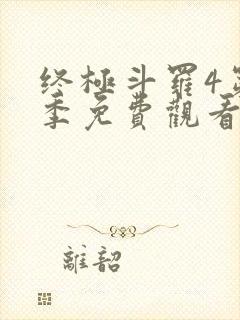 終極斗羅4第
季免費觀看
離韶